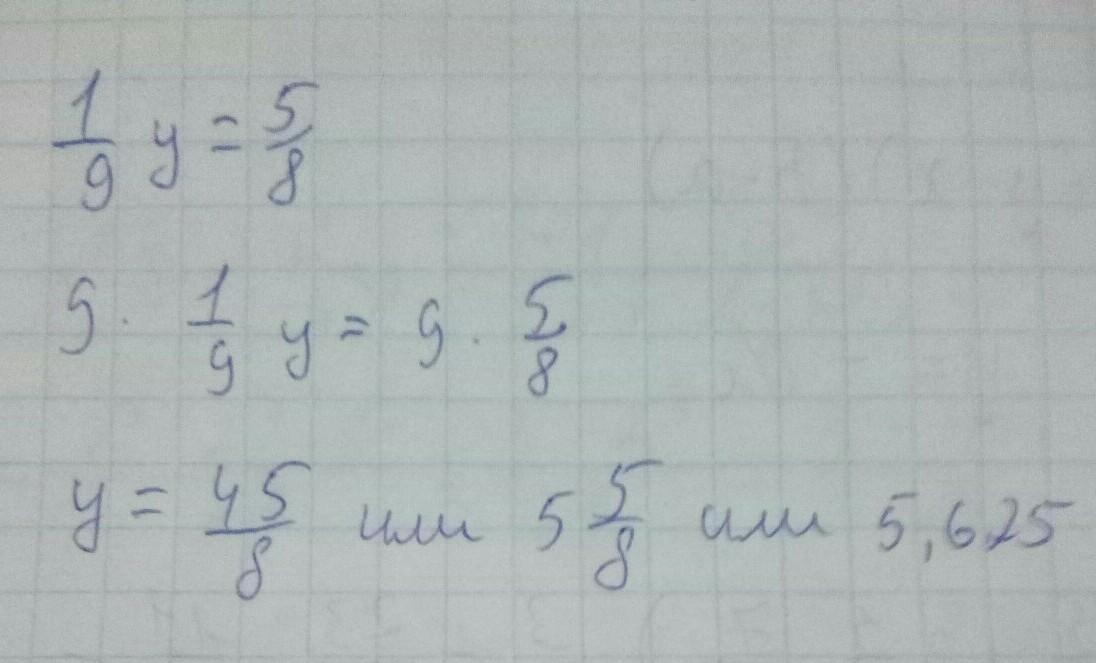 1/9 y = 5/8
9 · 1/9 y = 9 · 5/8
y = 45/8 или 5 5/8 или 5,625